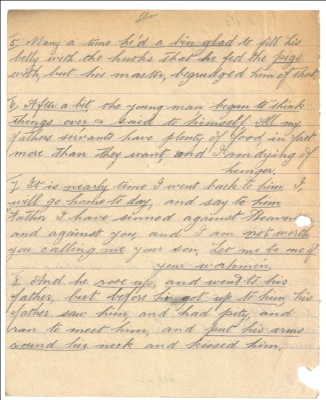 5 Many a time he'd a bin glad to fill his
belly with the husks that he fed the pigs
with but his master, begrudged him of that.
6, After a bit the young man began to think
things over & said to himself, All my
fathers servants have plenty of food, in fact
more than they want, and I am dying of
hunger.
7, It is nearly time I went back to him I
will go home to day, and say to him
Father I have sinned against Heaven
and against you, and I am not worth
you calling me your son, Let me be one of
your
8, And he rose up, and went to his
father, but before he got up to him, his
father saw him, and had pity, and
ran to meet him, and put his arms
round his neck and kissed him,